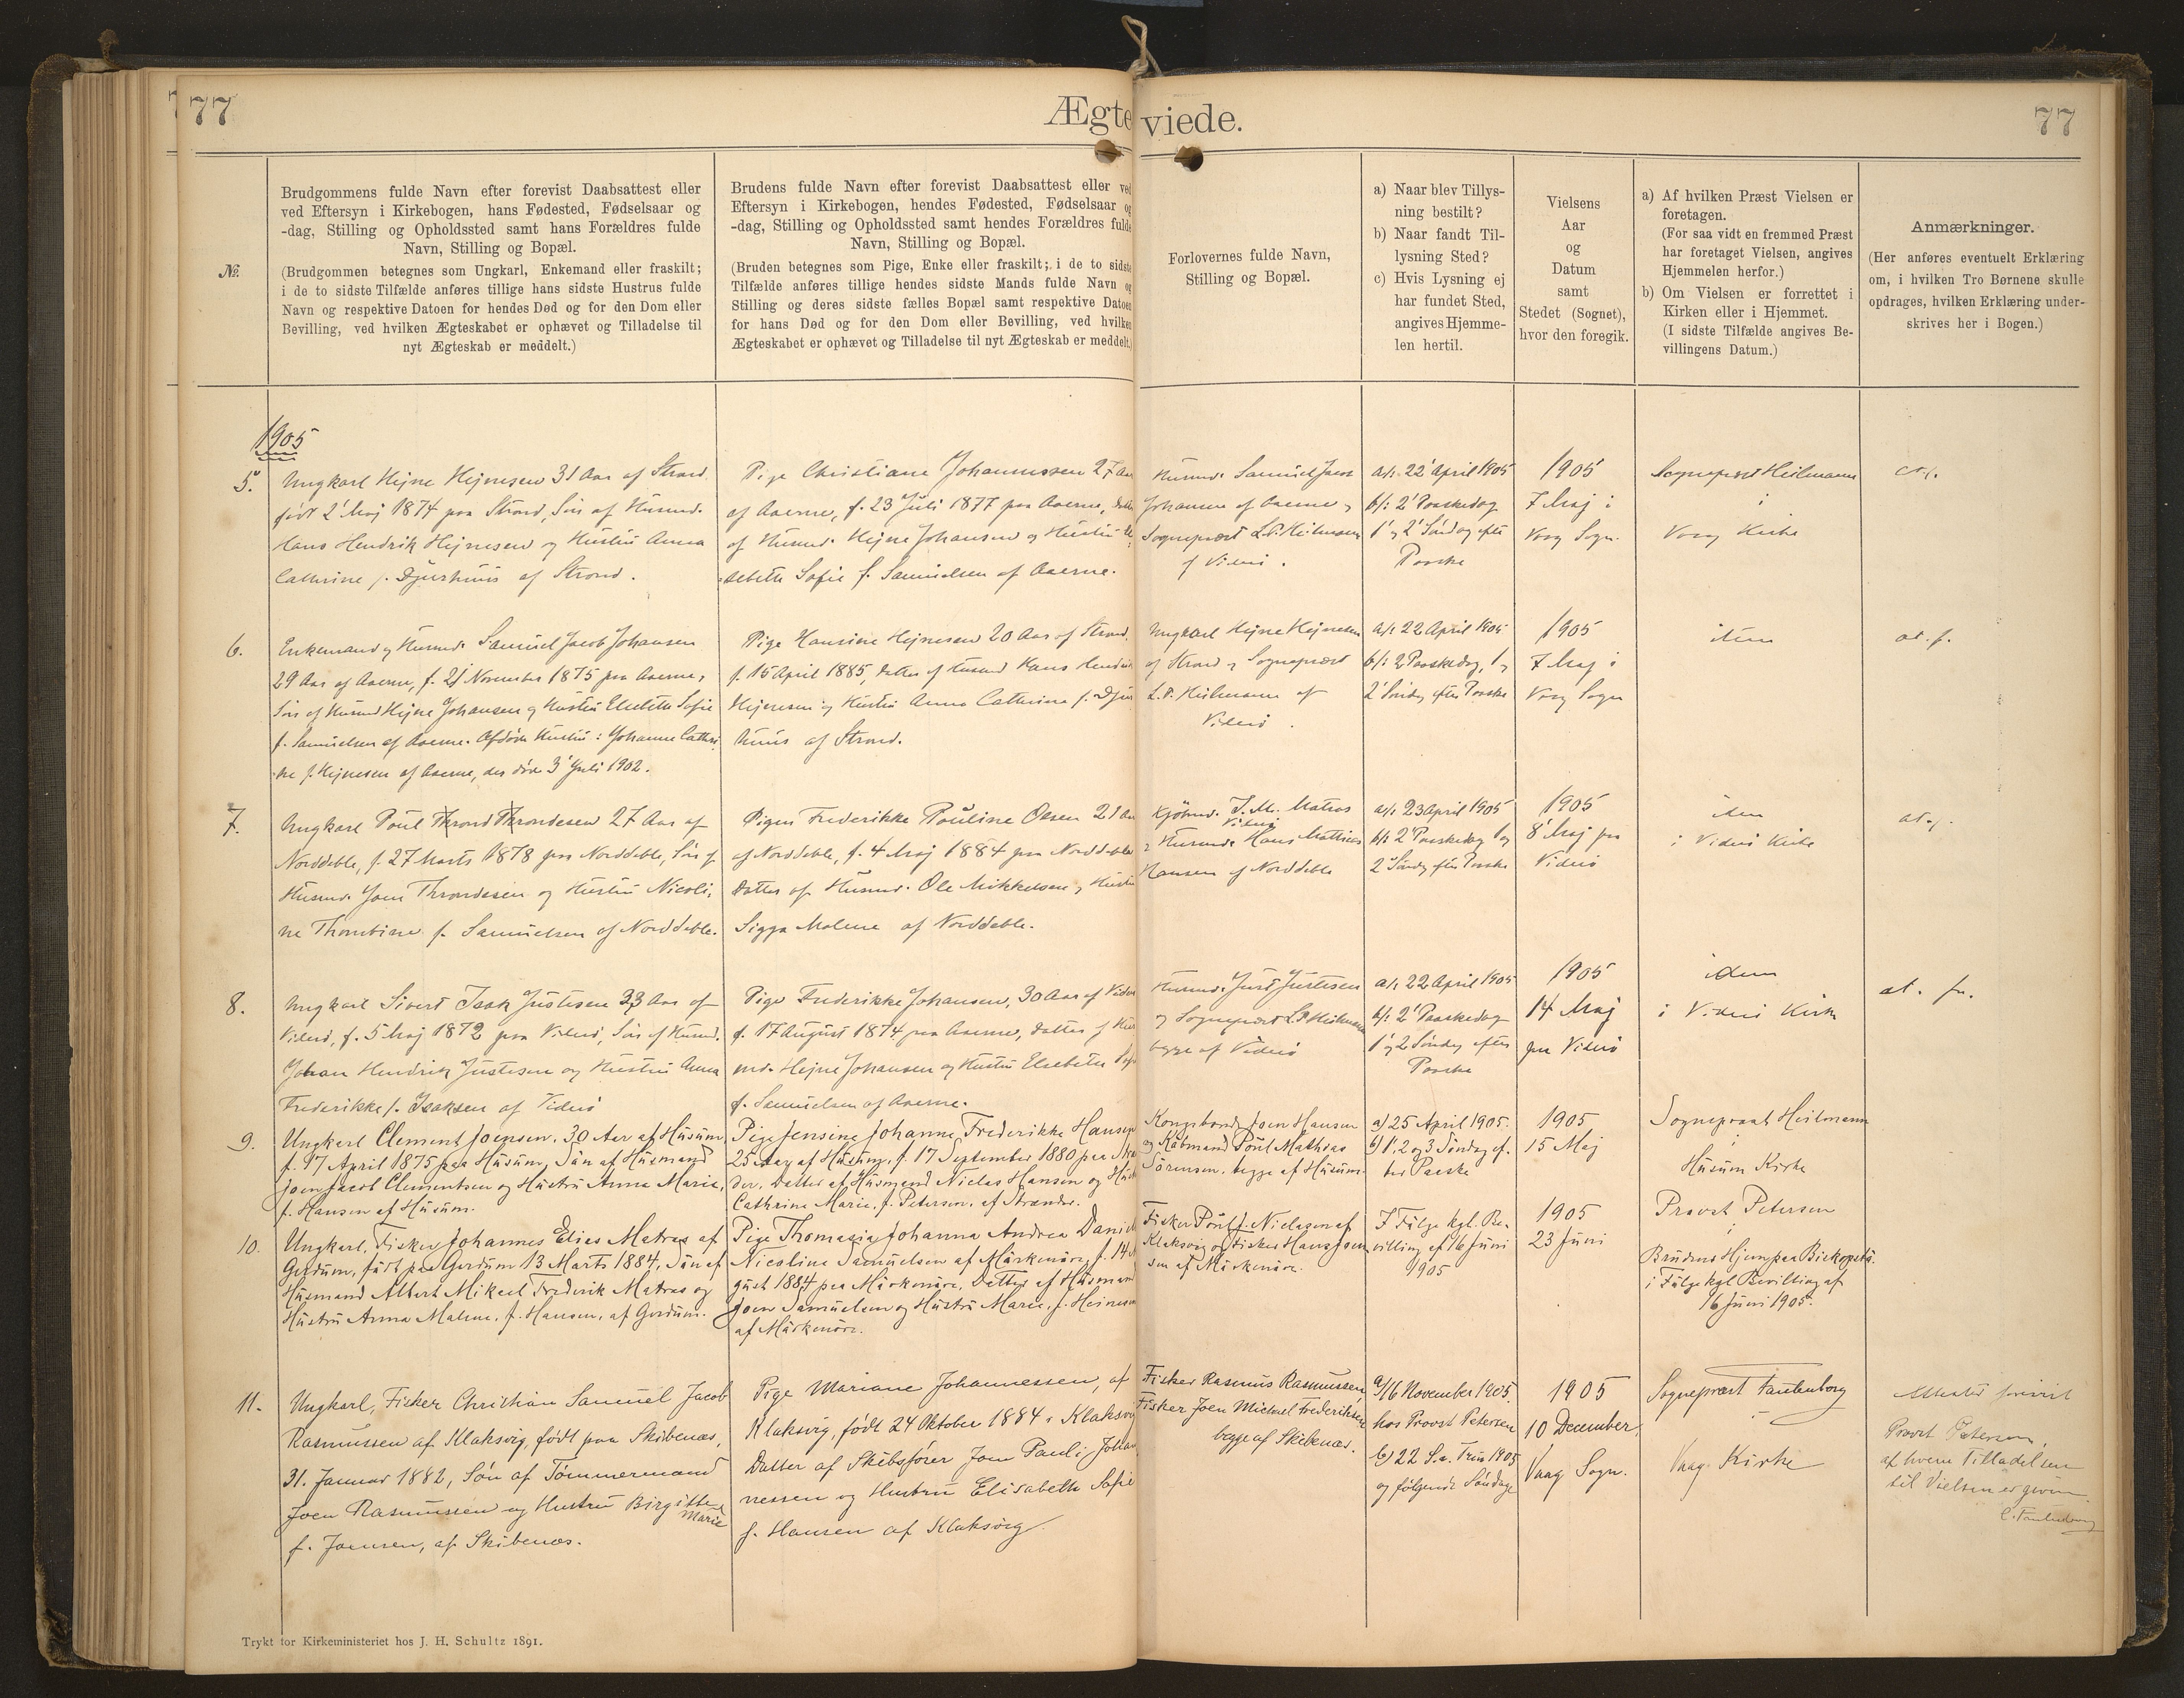 77
Ægteviede.
77
№.
Brudgommens fulde Navn efter forevist Daabsattest eller
ved Eftersyn i Kirkebogen, hans Fødested, Fødselsaar og
-dag, Stilling og Opholdssted samt hans Forældres fulde
Navn, Stilling og Bopæl.
(Brudgommen betegnes som Ungkarl, Enkemand eller fraskilt;
i de to sidste Tilfælde anføres tillige hans sidste Hustrus fulde
Navn og respektive Datoen for hendes Død og for den Dom eller
Bevilling, ved hvilken Ægteskabet er ophævet og Tilladelse til
nyt Ægteskab er meddelt.)
Brudens fulde Navn efter forevist Daabsattest eller ved
Eftersyn i Kirkebogen, hendes Fødested, Fødselsaar og
-dag, Stilling og Opholdssted samt hendes Forældres fulde
Navn, Stilling og Bopæl.
(Bruden betegnes som Pige, Enke eller fraskilt; i de to sidste
Tilfælde anføres tillige hendes sidste Mands fulde Navn og
Stilling og deres sidste fælles Bopæl samt respektive Datoen
for hans Død og for den Dom eller Bevilling, ved hvilken
Ægteskabet er ophævet og Tilladelse til nyt Ægteskab er meddelt.)
Forlovernes fulde Navn,
Stilling og Bopæl.
a) Naar blev Tillys-
ning bestilt?
b) Naar fandt Til-
lysning Sted?
c) Hvis Lysning ej
har fundet Sted,
angives Hjemme-
len hertil.
Vielsens
Aar
og
Datum
samt
Stedet (Sognet),
hvor den foregik.
a) Af hvilken Præst Vielsen er
foretagen.
(For saa vidt en fremmed Præst
har foretaget Vielsen, angives
Hjemmelen herfor.)
b) Om Vielsen er forrettet i
Kirken eller i Hjemmet.
(I sidste Tilfælde angives Be-
villingens Datum.)
Anmærkninger.
(Her anføres eventuelt Erklæring
om, i hvilken Tro Børnene skulle
opdrages, hvilken Erklæring under-
skrives her i Bogen.)
1905
5.
Ungkarl Hejne Hejnesen 31 Aar af Strond
født 2' Maj 1874 paa Strond, Søn af Husmd.
Hans Hendrik Hejnesen og Hustru Anna
Cathrine f. Djurhuus af Strond.
Pige Christiane Johannessen 27 Aar
af Aaerne, f. 23 Juli 1877 paa Aaerne,
af Husmd. Hejne Johansen og Hustru
sebeth Sofie f. Samuelsen af Aaerne.
Husmd. Samuel Jacob
Johansen af Aaerne
Sognepræst L.P. Heilmann
af Viderø.
a/: 22' April 1905
b/: 2' Paaskedag
1' og 2' Søndag efter
Paaske
1905
7 Maj i
Vaag Sogn.
Sognepræst Heilmann
i
Vaag Kirke
6.
Enkemand og Husmd. Samuel Jacob Johansen
29 Aar af Aaerne, f. 21 November 1875 paa Aaerne,
Søn af Husmd Hejne Johansen og Hustru Elsebeth Sofie
f. Samuelsen af Aaerne. Afdøde Hustru: Johanne Cathri
ne f. Hejnesen af Aaerne, der døde 3' Juli 1902.
Pige Hansine Hejnesen 20 Aar af Strond.
f. 15 April 1885, Datter af Husmd Hans Hendrik
Hejnesen og Hustru Anna Cathrine f. Djur
huus af Strond.
Ungkarl Hejne Hejnesen
af Strond og Sognepræst
L.P. Heilmann af
Viderø.
a/: 22 April 1905
b/: 2 Paaskedag, 1 og
2' Søndag efter Paaske
1905
7 Maj i
Vaag Sogn
idem
at. f.
7.
Ungkarl Poul Thrond Throndesen 27 Aar af
Norddeble, f. 27 Marts 1878 paa Norddeble, Søn af
Husmd. Joen Throndesen og Hustru Nicoli,
ne Thombine f. Samuelsen af Norddeble.
Pigen Frederikke Pouline Olsen 21 Aar
af Norddeble, f. 4 Maj 1884 paa Norddeble
Datter af Husmd. Ole Mikkelsen og Hustru
Sigga Malene af Norddeble.
Kjøbmd. J.M. Matras
Viderø
og Husmd. Hans Mathias
Hansen af Norddeble
a/: 23 April 1905
b/: 2' Paaskedag 1 og
2' Søndag efter Paaske
1905
8' Maj paa
Viderø
idem
i Viderø Kirke
at. f.
8.
Ungkarl Sivert Isak Justesen 33 Aar af
Viderø, f. 5 Maj 1872 paa Viderø, Søn af Husmd.
Johan Hendrik Justesen og Hustru Anna
Frederikke f. Isaksen af Viderø
Pige Frederikke Johansen, 30 Aar af Viderø
f. 17 August 1874 paa Aaerne, Datter af Hus
md. Hejne Johansen og Hustru Elsebeth Sofie
f. Samuelsen af Aaerne.
Husmd. Just Justesen
og Sognepræst L.P. Heilmann
begge af Viderø
a/: 22 April 1905
b/: 2' Paaskedag
1' og 2 Søndag efter
Paaske
1905
14 Maj
paa Viderø
idem
i Viderø Kirke
9.
Ungkarl Clement Joensen, 30 Aar af Husum,
f. 17 April 1875 paa Husum, Søn af Husmand
Joen Jacob Clementsen og Hustru Anna Marie,
f. Hansen af Husum.
Pige Jensine Johanne Frederikke Hansen
25 Aar af Husum, f. 17 September 1880 paa
der, Datter af Husmand Niclas Hansen og
Cathrine Marie, f. Petersen, af Strænder.
Kongsbonde Joen Hansen
og Købmand Poul Mathias
Sørensen, begge af Husum.
a) 25 April 1905.
b) 1', 2 og 3 Søndag ef-
ter Paaske
1905
15 Maj
Sognepræst Heilmann
i
Husum Kirke
10.
Ungkarl, Fisker Johannes Elias Matras af
Gerdum, født paa Gerdum 13 Marts 1884, Søn af
Husmand Albert Mikael Frederik Matras og
Hustru Anna Malene, f. Hansen, af Gerdum.
Pige Thomasia Johanna Andrea
Nicoline Samuelsen af Mærkenøre, f. 14
gust 1884 paa Mærkenøre, Datter af Husmand
Joen Samuelsen og Hustru Marie, f. Heinesen
af Mærkenøre.
Fisker Poul J. Nielsen af
Klaksvig og Fisker Hans Joen
sen af Mærkenøre.
I Følge kgl. Be-
villing af 16 Juni
1905
1905
23 Juni
Provst Petersen
i
Brudens Hjem paa Biskopstø
i Følge kgl Bevilling af
16 Juni 1905.
11.
Ungkarl, Fisker Christian Samuel Jacob
Rasmussen af Klaksvig, født paa Skibenæs,
31. Januar 1882, Søn af Tømmermand
Joen Rasmussen og Hustru Birgitte
Marie
f. Joensen, af Skibenæs.
Pige Mariane Johannessen, af
Klaksvig, født 24 Oktober 1884 i Klaksvig
Datter af Skibsfører Joen Pauli Johan
nessen og Hustru Elisabeth Sofie
f. Hansen af Klaksvig.
Fisker Rasmus Rasmussen,
Fisker Joen Michael Frederiksen
begge af Skibenæs.
a/16 November 1905.
hos Provst Petersen
b) 22 S. e. Trin 1905
og følgende Søndage
1905
10 December,
Vaag Sogn.
Sognepræst Fautenborg
i
Vaag Kirke
Provst Petersen,
af hvem Tilladelsen
til Vielsen er given.
Trykt for Kirkeministeriet hos J. H. Schultz 1891.